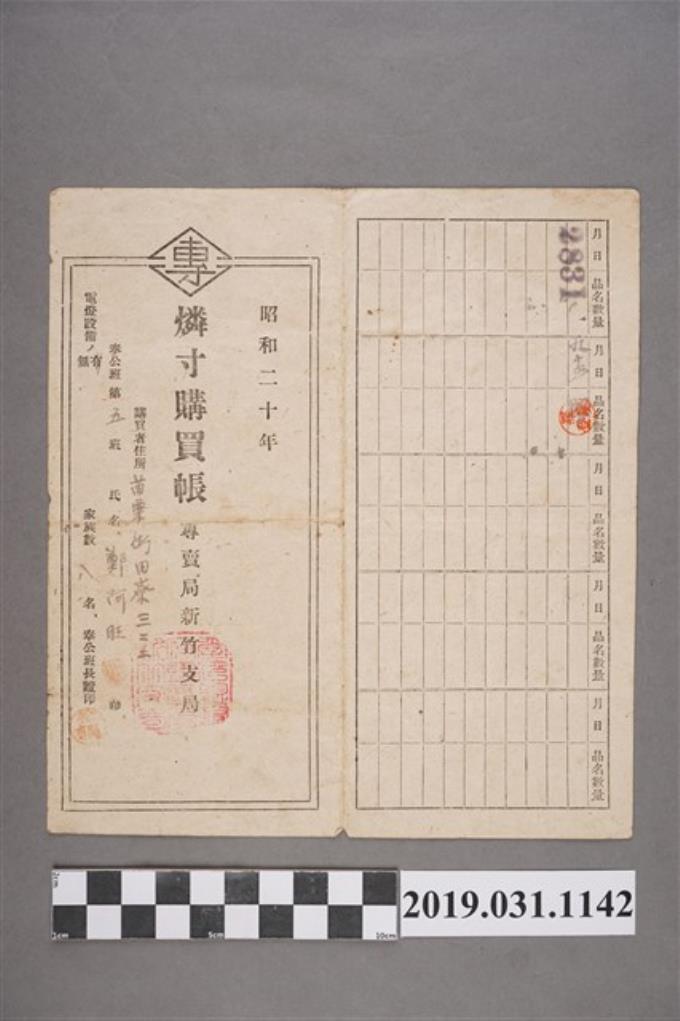 月日
品名數量
月日
品名數量
月日
品名數量
月日
品名數量
月日
品名數量
2831
昭和二十年
專
燐寸購買帳
專賣局新竹支局
購買者住所 苗栗街田寮三二三
奉公班第五班 氏名 鄭阿旺 印
電燈設備ノ有無
家族數 八名、奉公班長證印
1cm
5cm
10cm
2019.031.1142